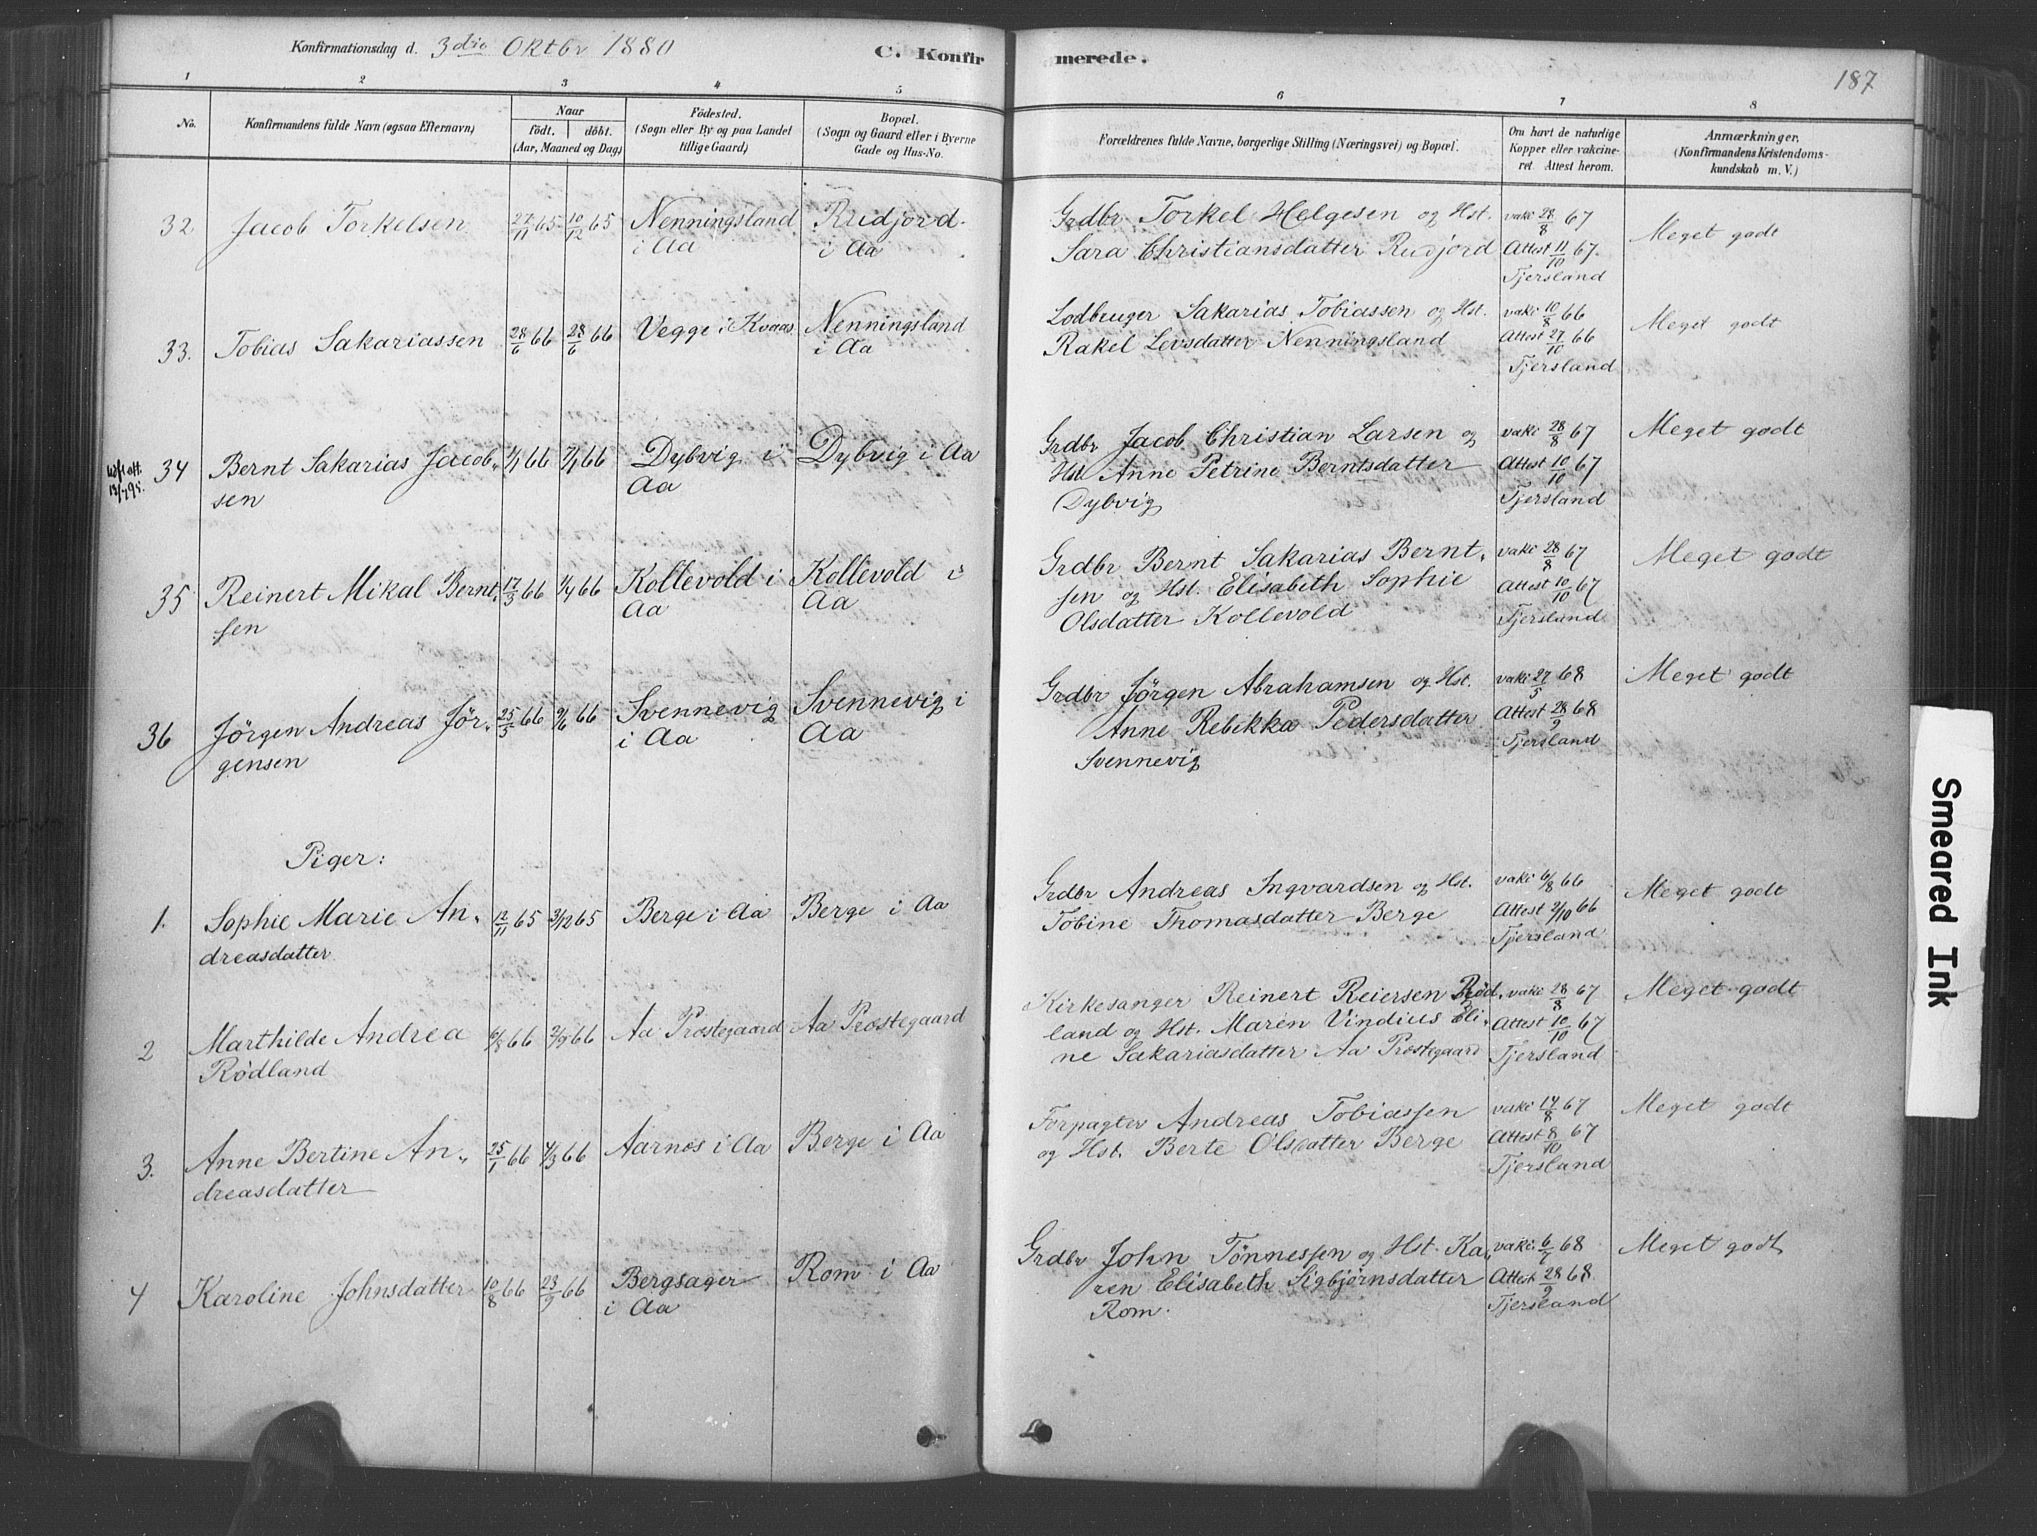 Konfirmationsdag d. 3die Oktbr 1880
C. Konfirmerede.
187
1 2 3 4 5 6 7 8
No.
Konfirmandens fulde Navn (ogsaa Efternavn)
Naar
födt. | döbt.
(Aar, Maaned og Dag)
Födested.
(Sogn eller By og paa Landet
tillige Gaard)
Bopæl.
(Sogn og Gaard eller i Byerne
Gade og Hus-No.
Forældrenes fulde Navne, borgerlige Stilling (Næringsvei) og Bopæl.
Om havt de naturlige
Kopper eller vakcine-
ret Attest herom.
Anmærkninger,
(Konfirmandens Kristendoms-
kundskab m. V.)
32 Jacob Torkelsen 27/11 65 10/12 65
Nenningsland
i Aa
Rudjord
i Aa
Grdbr Torkel Helgesen og Hst.
Sara Christiansdatter Rudjord
vaki 28/8 67
Attest 11/10 67
Tjersland
Meget godt
33. Tobias Sakariassen 28/6 66 28/6 66
Vegge i Kvaas
Nenningsland
i Aa
Sakarias Tobiassen og Hst.
Rakel Levsdatter Nenningsland
vaki 10/8 66
Attest 27/10 66
Tjersland
Meget godt
34 Bernt Sakarias Jacob-
sen
66 66
Dybvig i
Aa
Dybvig i Aa
Grdbr Jacob Christian Larsen og
Hst Anne Petrine Berntsdatter
Dybvig
vaki 28/8 67
Attest 10/10 67
Tjersland
Meget godt
35 Reinert Mikal Bernt-
sen
17/3 66 1/4 66
Kollevold i
Aa
Kollevold i
Aa
Grdbr Bernt Sakarias Bernt-
sen og Hst. Elisabeth Sophie
Olsdatter Kollevold
vaki 28/8 67
Attest 10/10 67
Tjersland
Meget godt
36 Jørgen Andreas Jør-
gensen
25/5 66 9/6 66
Svennevig
i Aa
Svennevig i
Aa
Grdbr Jørgen Abrahamsen og Hst.
Anne Rebikka Pedersdatter
Svennevig
vaki 27/5 68
Attest 28/9 68
Tjersland
Meget godt
Piger:
1. Sophie Marie An-
dreasdatter
12/11 65 3/12 65
Berge i Aa
Berge i Aa
Grdbr Andreas Ingvardsen og Hst.
Tobine Thomasdatter Berge
vaki 6/8 66
Attest 2/10 66
Tjersland
Meget godt
2 Marthilde Andrea
Rødland
6/8 66 2/9 66
Aa Prestegaard
Aa Prestegaard
Kirkesanger Reinert Reiersen Rød-
land og Hst. Maren Vindius Eli-
ne Sakariasdatter Aa Prestegaard
vaki 28/8 67
Attest 10/10 67
Tjersland
Meget godt
3. Anne Bertine An-
dreasdatter
25/1 66 4/3 66
Aarnes i Aa
Berge i Aa
Forpagter Andreas Tobiassen
og Hst. Berte Olsdatter Berge
vaki 14/8 67
Attest 8/10 67
Tjersland
Meget godt
4 Karoline Johnsdatter 10/8 66 23/9 66
Bergsager
i Aa
Rom i Aa
Grdbr John Tønnessen og Hst. Ka-
ren Elisabeth Sigbjørnsdatter
Rom.
vaki 68
Attest 28/9 68
Tjersland
Meget godt
Smeared Ink